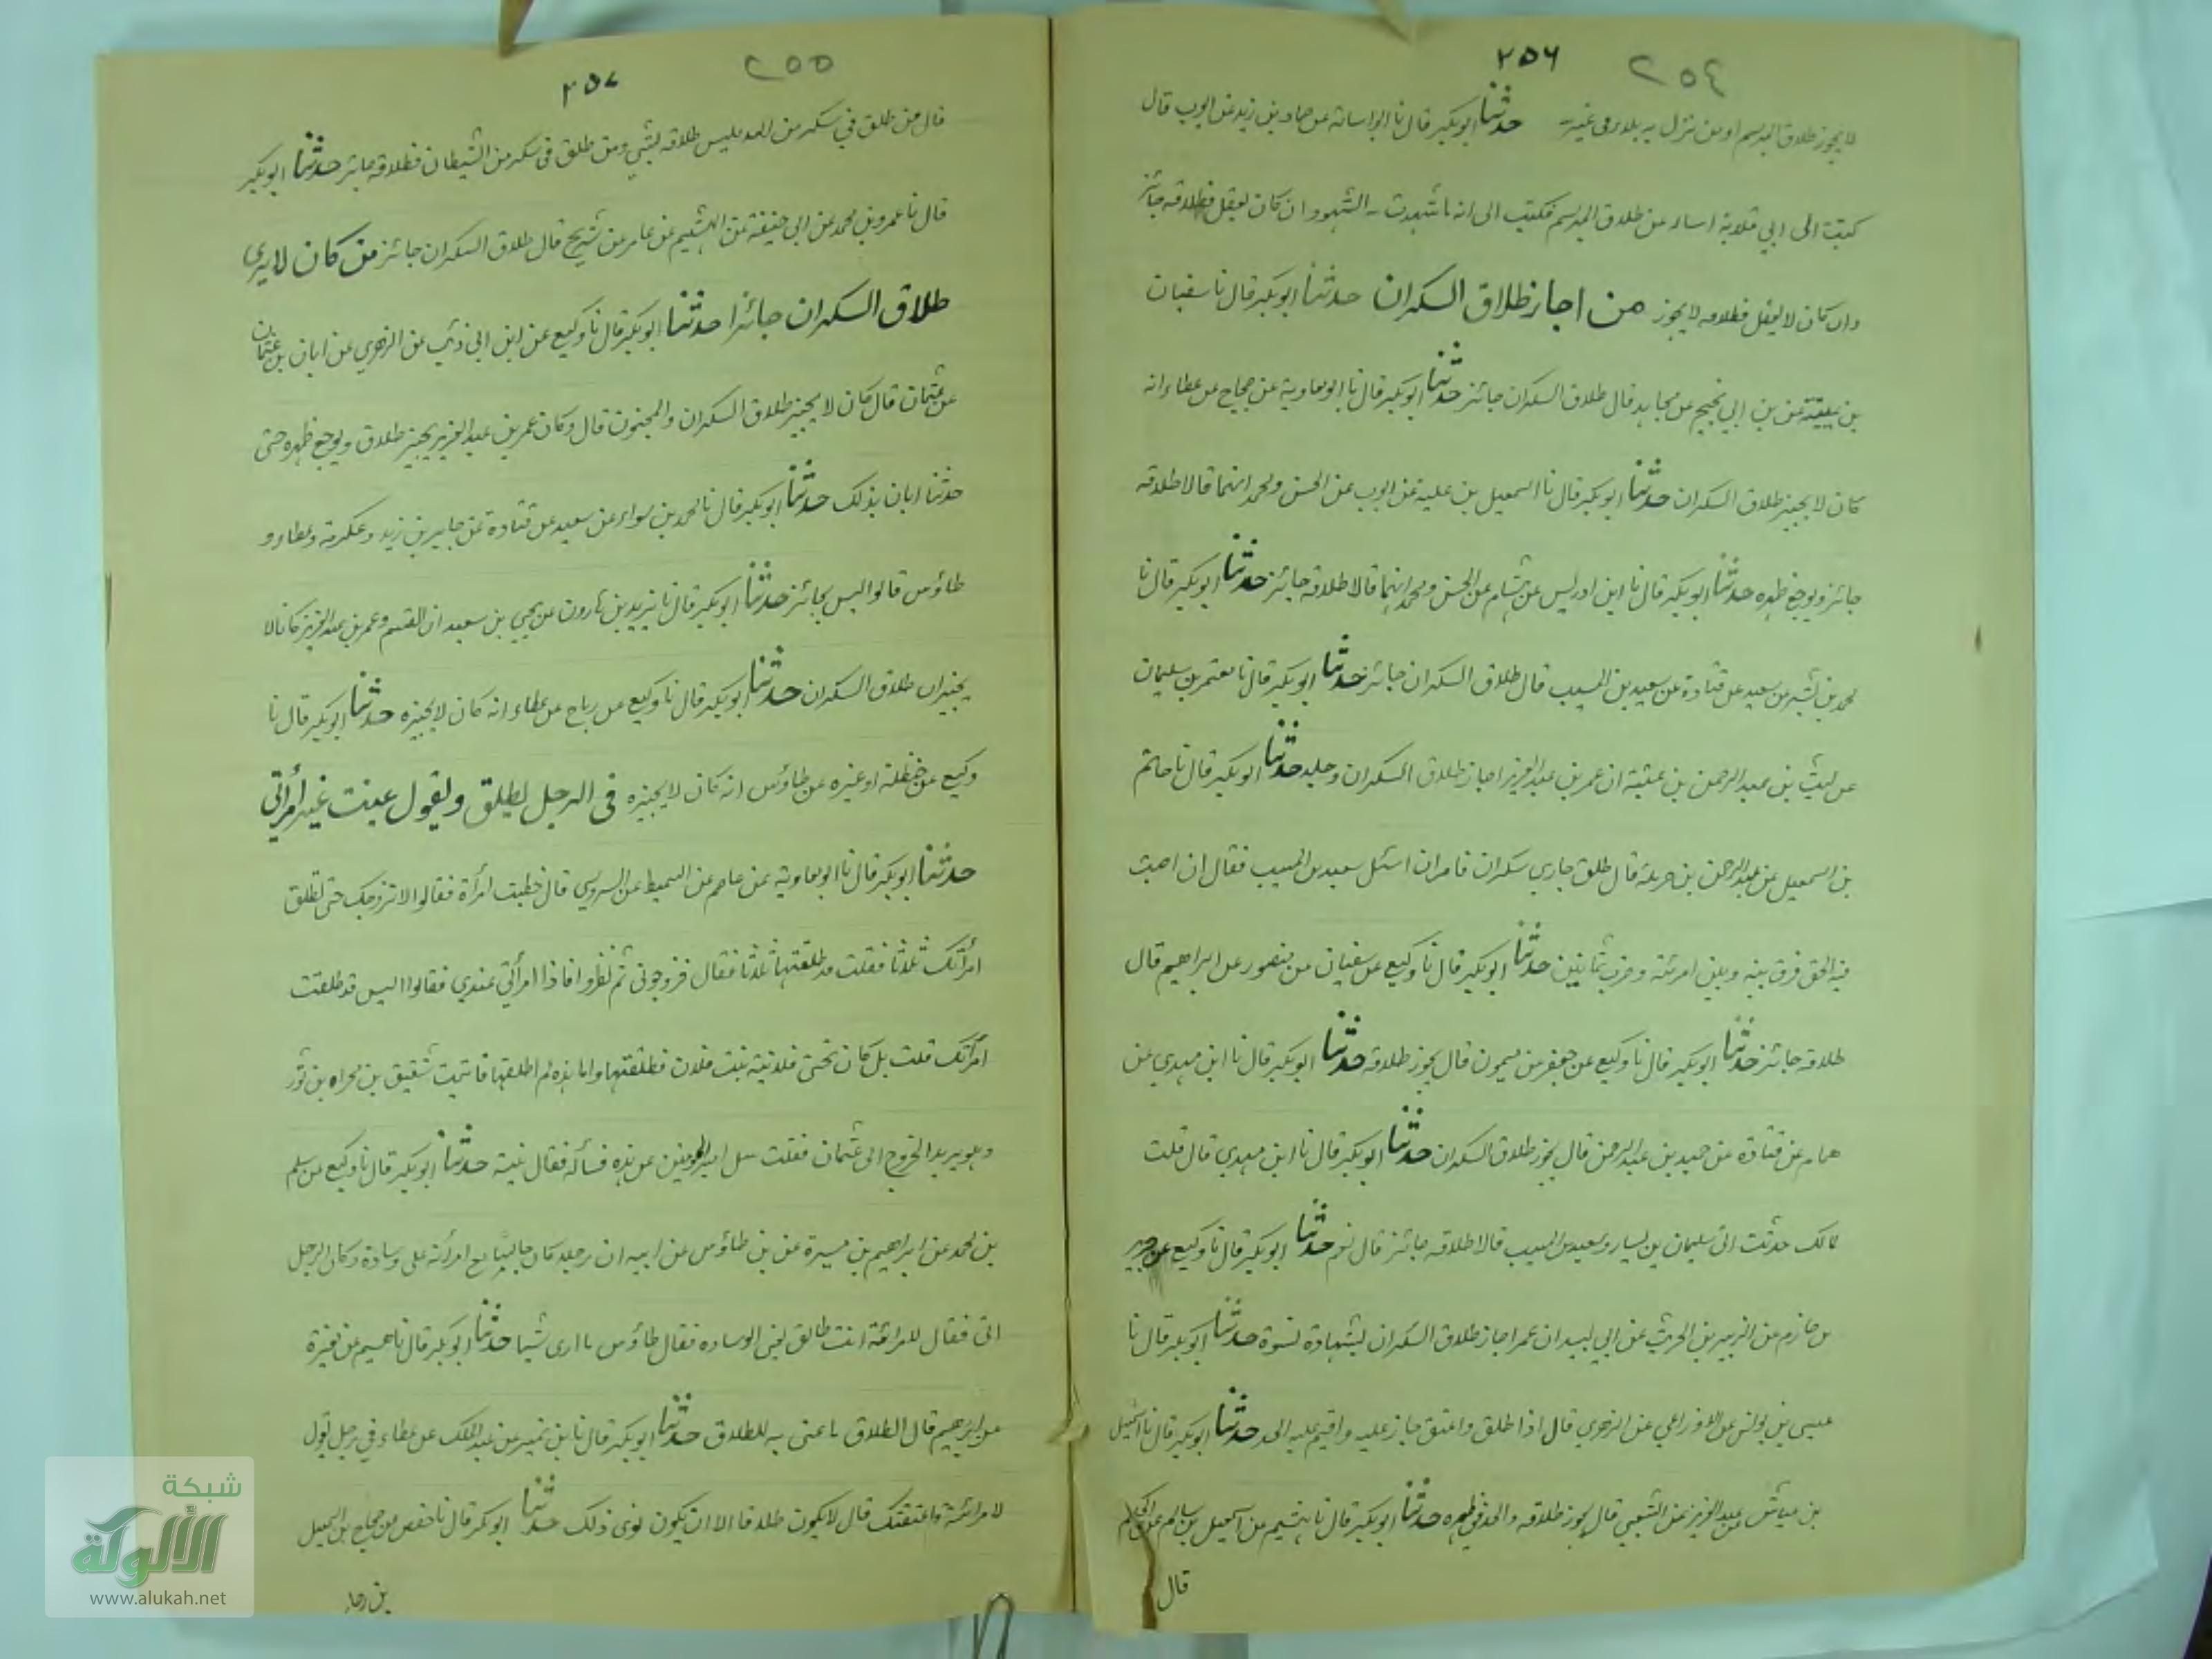 ٢٥٦ ٢٥٤
لا يجوز طلاق المبرسم او من نزل به بلاء فى غيره حدثنا ابو بكر قال نا ابو اسامة عن حماد بن زيد عن ايوب قال
كتبت الى ابي قلابة اساله عن طلاق المبرسم فكتب الى انه ما شهدت به الشهود ان كان يعقل فطلاقه جائز
وان كان لا يعقل فطلاقه لا يجوز من اجاز طلاق السكران حدثنا ابو بكر قال نا سفيان
بن عيينة عن بن ابي نجيح عن مجاهد قال طلاق السكران جائز حدثنا ابو بكر قال نا ابو معاوية عن حجاج عن عطاء انه
كان لا يجيز طلاق السكران حدثنا ابو بكر قال نا اسمعيل بن علية عن ايوب عن الحسن ومحمد انهما قالا طلاقه
جائز ويوجع ظهره حدثنا ابو بكر قال نا ابن ادريس عن هشام عن الحسن ومحمد انهما قالا طلاقه جائز حدثنا ابو بكر قال نا
محمد بن بشر عن سعيد عن قتادة عن سعيد بن المسيب قال طلاق السكران جائز حدثنا ابو بكر قال نا معتمر بن سليمان
عن ليث بن عبد الرحمن بن عتبة ان عمر بن عبد العزيز اجاز طلاق السكران وجلد حدثنا ابو بكر قال نا حاتم
بن اسمعيل عن عبد الرحمن بن حرملة قال طلق جاري سكران فامران اسئل سعيد بن المسيب فقال ان اصبت
فيه الحق فرق بينه وبين امرئته وضرب ثمانين حدثنا ابو بكر قال نا وكيع عن سفيان عن منصور عن ابراهيم قال
طلاقه جائز حدثنا ابو بكر قال نا وكيع عن جعفر عن ميمون قال يجوز طلاقه حدثنا ابو بكر قال نا ابن مهدي عن
همام عن قتادة عن حميد بن عبد الرحمن قال يجوز طلاق السكران حدثنا ابو بكر قال نا ابن مهدي قال قلت
لمالك حدثت انى سليمان بن يسار وسعيد بن المسيب قالا طلاقه جائز قال نعم حدثنا ابو بكر قال نا وكيع عن جرير
بن حازم عن الزبير بن الحريث عن ابي لبيد ان عمر اجاز طلاق السكران بشهادة نسوة حدثنا ابو بكر قال نا
عيسى بن يونس عن الاوزاعي عن الزهري قال اذا طلق واعتق جاز عليه واقيم عليه الحد حدثنا ابو بكر قال نا اسمعيل
بن عياش عن عبد العزيز عن الشعبي قال يجوز طلاقه والحد في ظهره حدثنا ابو بكر قال نا هشيم عن اسمعيل بن سالم عن الحكم
قال
٢٥٧ ٢٥٥
قال من طلق في سكر من الله فليس طلاقه بشيء ومن طلق فى سكر من الشيطان فطلاقه جائز حدثنا ابو بكر
قال نا عمرو بن محمد عن ابى حنيفة عن الهيثم عن عامر عن شريح قال طلاق السكران جائز من كان لا يرى
طلاق السكران جائزا حدثنا ابو بكر قال نا وكيع عن ابن ابى ذئب عن الزهري عن ابان بن عثمان
عن عثمان قال كان لا يجيز طلاق السكران والمجنون قال وكان عمر بن عبد العزيز يجيز طلاق ويوجع ظهره حتى
حدثنا ابان بذلك حدثنا ابو بكر قال نا محمد بن سواء عن سعيد عن قتادة عن جابر بن زيد وعكرمة وعطاء و
طاؤس قالوا ليس بجائز حدثنا ابو بكر قال نا يزيد بن هارون عن يحيى بن سعيد ان القسم وعمر بن عبد العزيز كانا لا
يجيزان طلاق السكران حدثنا ابو بكر قال نا وكيع عن رباح عن عطاء انه كان لا يجيزه حدثنا ابو بكر قال نا
وكيع عن حنظلة او غيره عن طاؤس انه كان لا يجيزه فى الرجل يطلق ويقول عنيت غير امرأتي
حدثنا ابو بكر قال نا ابو معاوية عن عاصم عن السميط عن السدوسي قال خطبت امرأة فقالوا لا نزوجك حتى تطلق
امرأتك ثلاثا فقلت قد طلقتها ثلاثا فقال فزوجونى ثم نظروا فاذا امرأتي عندي فقالوا اليس قد طلقت
امرأتك قلت بل كان تحتى فلانية بنت فلان فطلقتها واما هذه لم اطلقها فاتيت شقيق بن مجزاه بن ثور
وهو يريد الخروج الى عثمان فقلت سل امير المومنين عن هذه فسأله فقال نيته حدثنا ابو بكر قال نا وكيع عن سلم
بن محمد عن ابراهيم بن ميسرة عن بن طاؤس عن ابيه ان رجلا كان جالسا مع امرأته على وسادة وكان الرجل
اتى فقال لامرأته انت طالق يعنى الوساده فقال طاؤس ما ارى شيئا حدثنا ابو بكر قال نا هشيم عن مغيرة
عن ابراهيم قال الطلاق ما عنى به للطلاق حدثنا ابو بكر قال نا بن نمير عن عبد الملك عن عطاء في رجل يقول
لامرأته واعتقتك قال لا يكون طلاقا الا ان يكون نوى ذلك حدثنا ابو بكر قال نا حفص عن حجاج بن اسمعيل
بن رجاء
شبكة
الألوكة
www.alukah.net